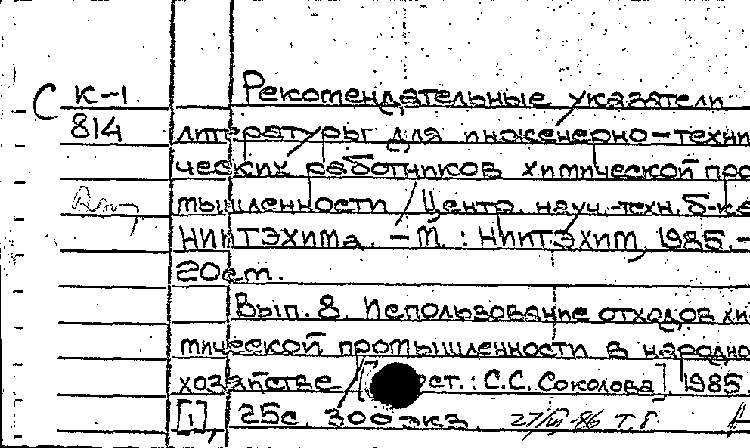 С К-1 Рекомендательные указатели
814 литературы для инженерно-техни
ческих работников химической про
мышленности / Центр. науч.-техн. б-ка
НИИТЭХИМа. - М. : НИИТЭХИМ, 1985. -
20см.
Вып. 8. Использование отходов хи
мической промышленности в народно
хозяйстве / [ ст. : С.С. Соколова]. 1985.
[1], 25с. 300экз. 27/VI-86 Т.Г.